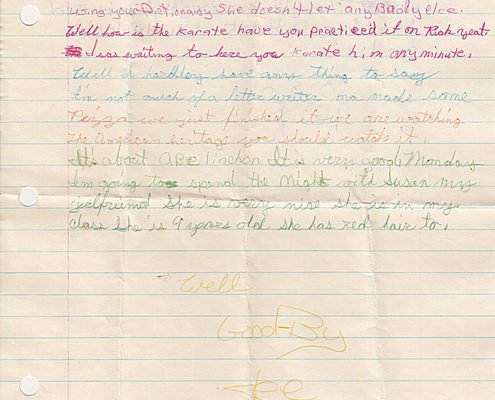 is using your Dictionairy She doesn't let any Bady else.
Well how is the karate have you practiced it on Rick yeat.
I was waiting to here you karate him any minute.
Well I hardley have any thing to say
I'm not much of a letter writer ma made some
Pizza we just finished it we are watching
the American heritage you should watch it
It's about ABE linchon It is very good Monday
Im going to spend the Might with Susan my
girlfriend she is very nise she is in my
class She is 9 years old she has red hair to.
Well
Good-By